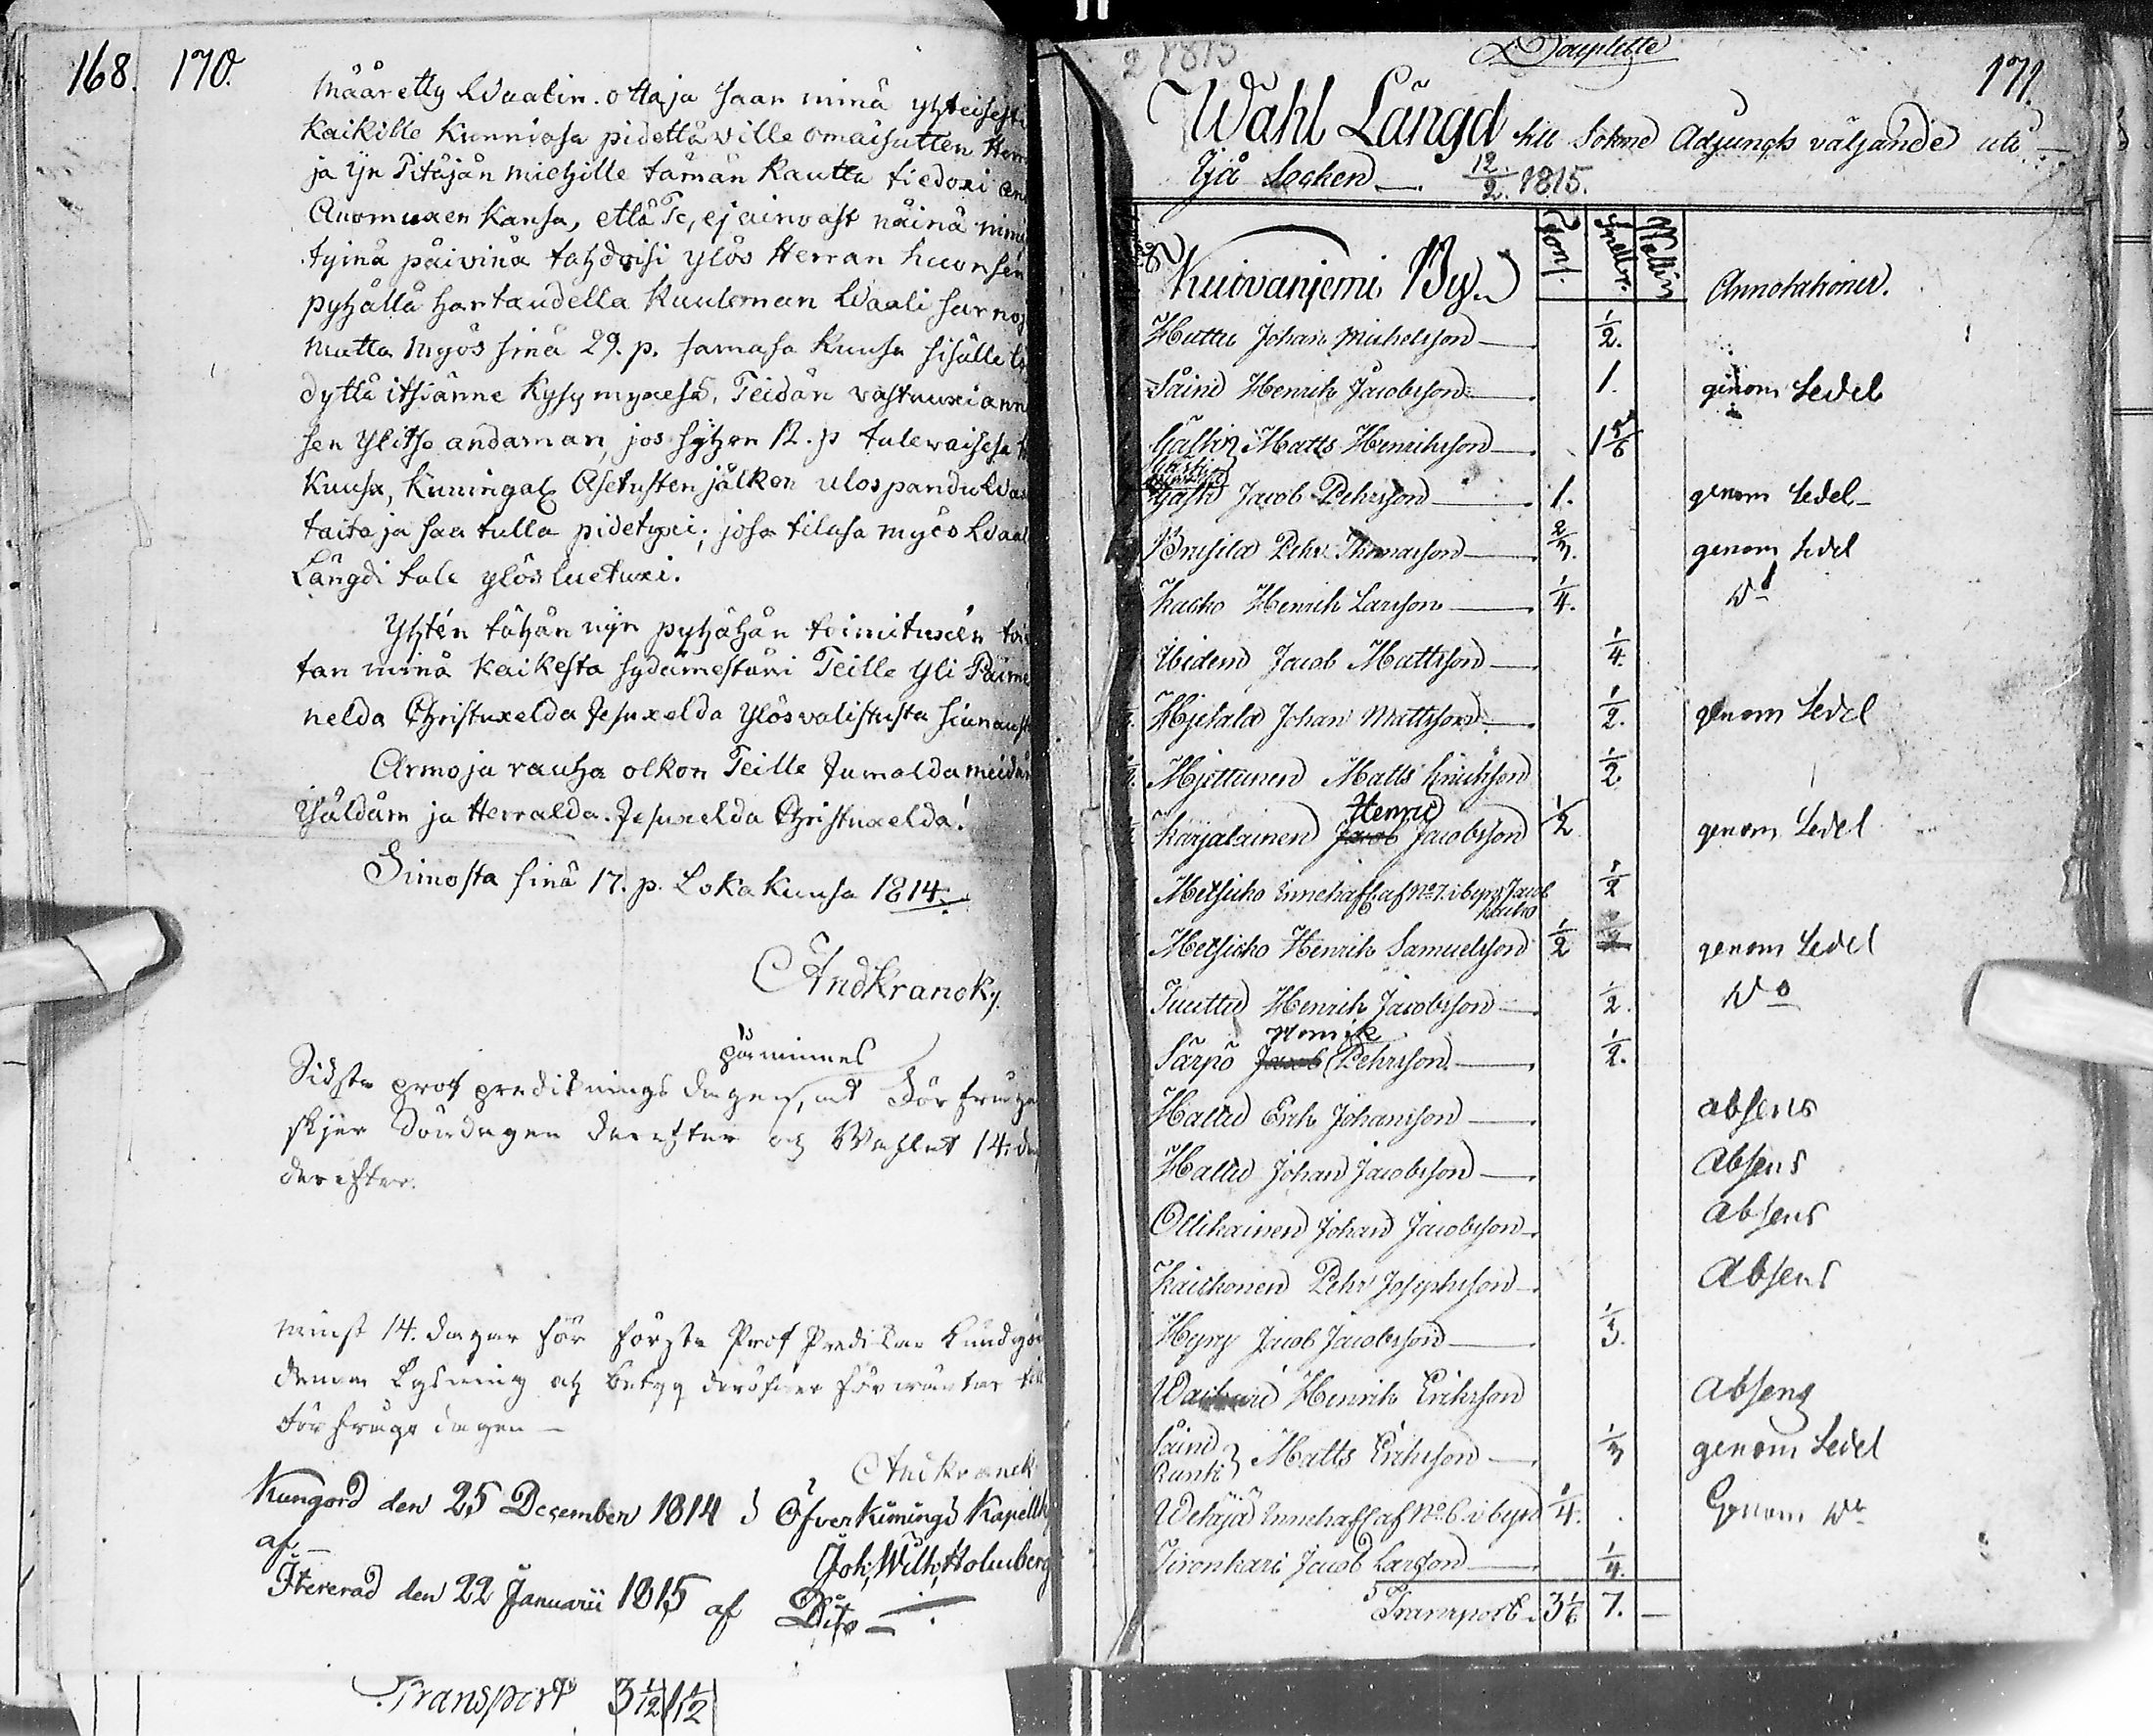 168. 170.
määretty Waalin ottaja saan minä yhteisesti
Kaikille Kunniasa pidettäville omaisutten Herr
ja Ijn Pitäjän miehille tämän Kautta tiedoxi an
Anomuxen Kansa, että Te, ej ainoast näinä nimi
tyinä päivinä tahdoisi ylös Herran huonsen
pyhällä hartaudella Kuuleman Waali sarnoj
mutta myös sinä 29. p. samasa Kuusa sisälle lö
dyttä itsiänne Kysymyxesä, Teidän vastauxi ann
sen Ylitse andaman, jos syhen 12. p tulevaisesa
Kuusa, Kuningal Asetusten jälken ulospandu Waa
taita ja saa tulla pidetyxi; josa tilasa myös Waal
Längdi tule ylösluetuxi.
Yhtén tähän nijn pyhähän toimituxeén toi
tan minä Kaikesta sydämestäni Teille Yli Paime
nelda Christuxelda Jesuxelda Ylösvalistusta siunaust
Armo ja rauha olkon Teille Jumalda meidän
Isäldäm ja Herralda Jesuxelda Christuxelda!
Simosta sinä 17. p. Lokakuusa 1814.
And Kranck
påminnes
Sidsta prof prediknings dagen, at Förfråga
skjer Söndagen derefter och Wahlet 14. da
derefter.
minst 14. dagar för första Prof Predikan Kundgö
denna Lysning och betyg deröfver förväntas till
Förfrågs dagen —
And Kranck
Kungord den 25 December 1814 i Öfverkimingi Kapell
af Joh, Wilh, Holmberg
Itererad den 22 Januarii 1815 af Dito
Transport 3 1/12 1 1/12
2 1815
Douplette
171.
Wahl Längd till Sokne Adjuncts väljande uti
Ijå Socken — 12/2. 1815.
Kuivaniemi By. Annotationer.
Huttu Johan Michelsson — 1/2.
Säine Henrik Jacobsson — 1. genom Sedel
Matts Henriksson — 1 5/6
Jacob Pehrsson — 1. genom Sedel
Brusila Pehr Thomasson — 2/3. genom Sedel
Kacko Henrik Larsson — 1/4. Do
Ibidem Jacob Mattsson — 1/4.
Hjetala Johan Mattsson — 1/2. genom Sedel
Hyttinen Matts Eriksson 1/2
Henric
Karjalainen Jacob Jacobsson 1/2 genom Sedel
Metsicko Innehaff. af No 7. i byn Jacob Kacko 1/2
Metsicko Henrik Samuelsson 1/2 genom Sedel
Tuuttu Henrik Jacobsson — 1/2. Do
Henrik
Särpö Jacob Pehrsson — 1/2.
Hallu Erik Johansson — absens
Hallu Johan Jacobsson — Absens
Ollikainen Johan Jacobsson — Absens
Kaickonen Pehr Josephsson — Absens
Hyry Jacob Jacobsson — 1/3.
Henrik Eriksson Absens
Säine
Runti Matts Eriksson — 1/3 genom Sedel
Wetäjä Innehaff af No 6. i byn 1/4. Genom Do
Tironkari Jacob Larsson — 1/4.
Transport. 3 1/6 7. —